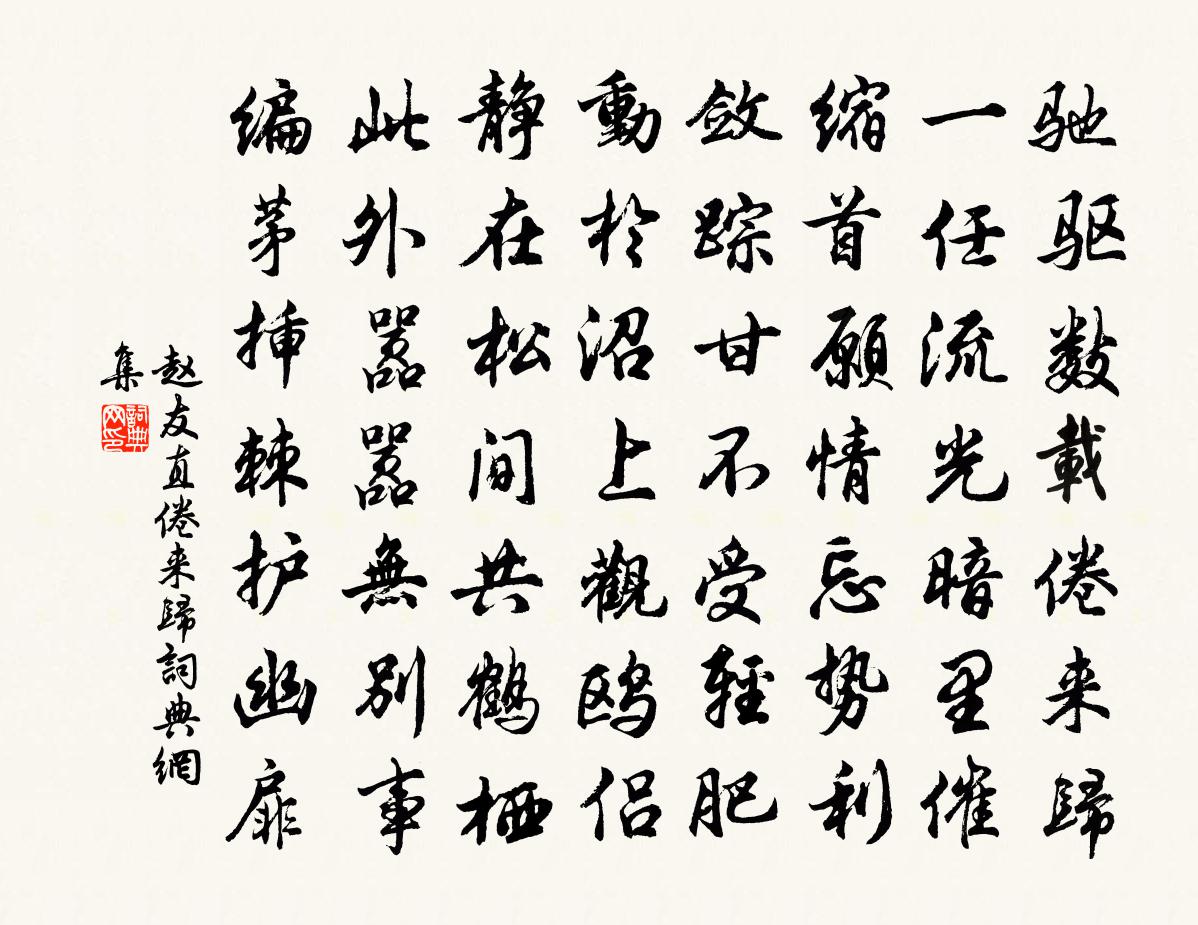 驰驱数載倦来歸
一任流光暗里催
缩首願情忘势利
敛踪甘不受輕肥
動於沼上觀鸥侣
静在松间共鹤栖
此外嚣嚣無别事
编茅挿棘护幽扉
赵友直倦来歸詞典網
集
詞典网印